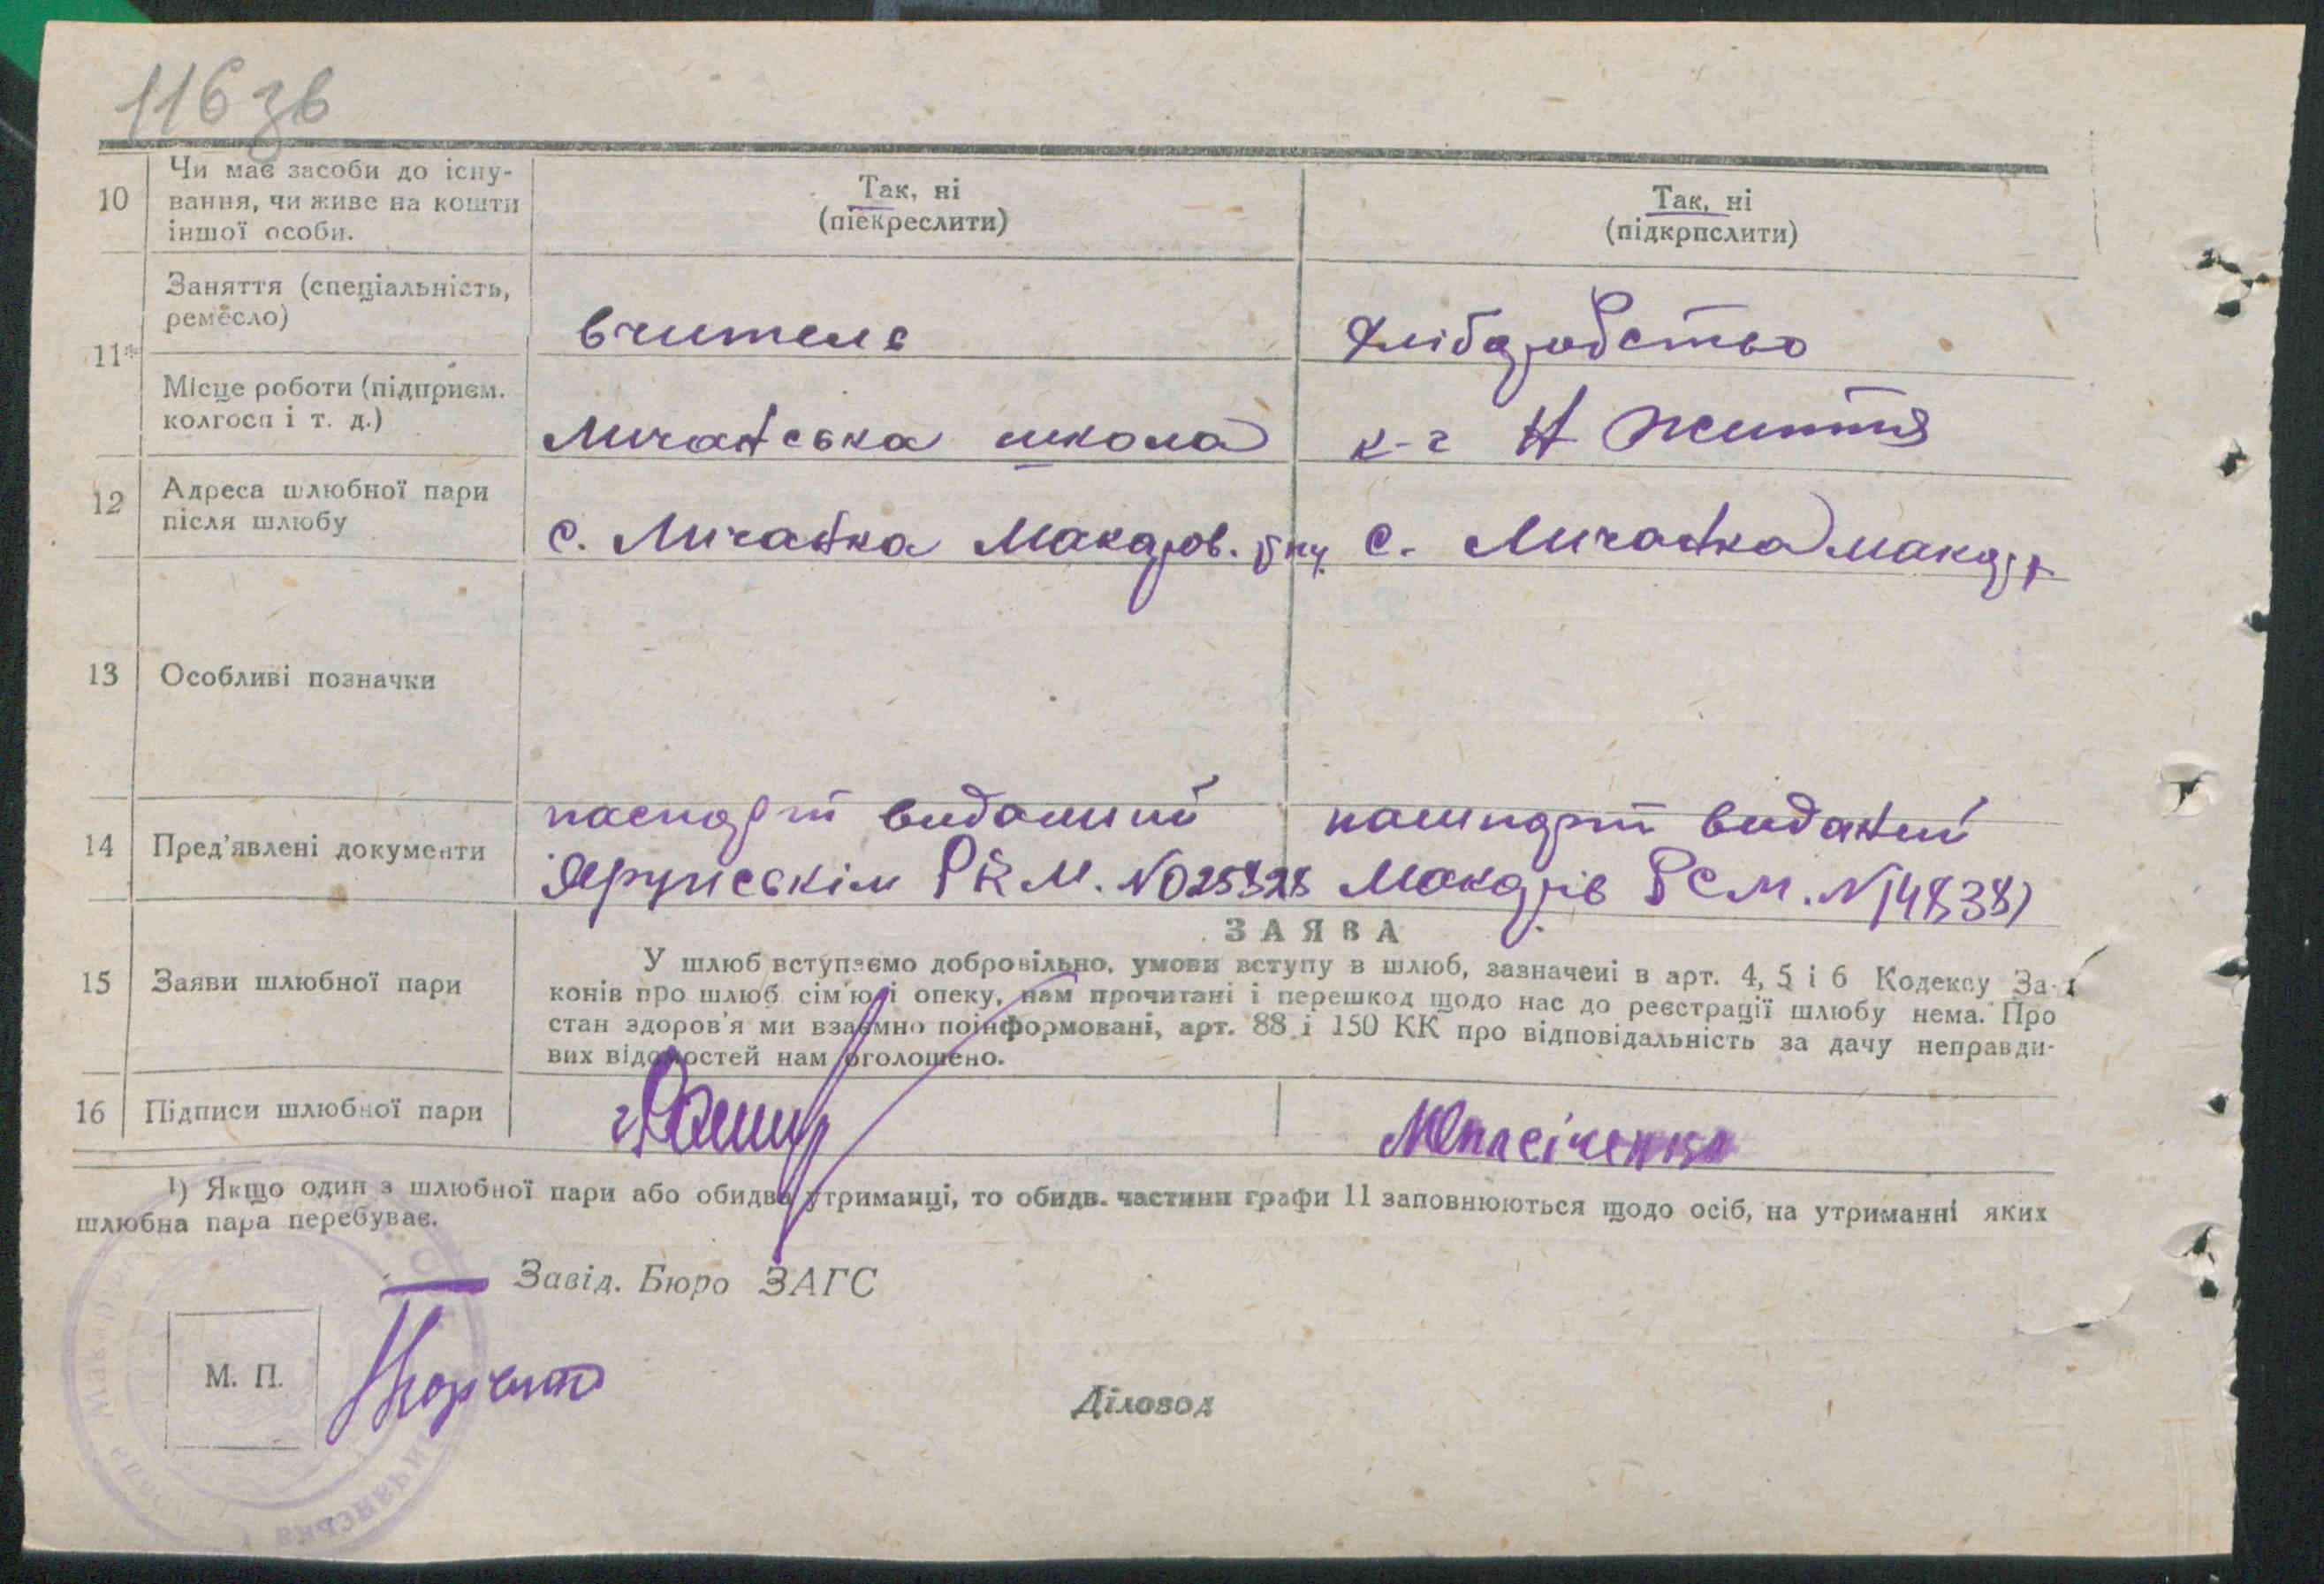 116 зв
10 Чи має засоби до існу-
вання, чи живе на кошти
іншої особи.
Так, ні
(піекреслити)
Так, ні
(підкрпслити)
11 Заняття (спеціальність,
ремесло)
вчитель
хліборобство
Місце роботи (підприєм.
колгосп і т. д.)
Мичанська школа
к-г Н Життя
12 Адреса шлюбної пари
після шлюбу
с. Мичанка Макаров. р-ну
с. Мичанка Макар
13 Особливі позначки
14 Пред'явлені документи
паспорт виданий
РКМ. №025328
пашпорт виданий
Макарів РСМ. №
ЗАЯВА
15 Заяви шлюбної пари
У шлюб вступаємо добровільно, умови вступу в шлюб, зазначені в арт. 4, 5 і 6 Кодексу За-
конів про шлюб сім'ю і опеку, нам прочитані і перешкод щодо нас до реєстрації шлюбу нема. Про
стан здоров'я ми взаємно поінформовані, арт. 88 і 150 КК про відповідальність за дачу неправди-
вих відомостей нам оголошено.
16 Підписи шлюбної пари
1) Якщо один з шлюбної пари або обидва утриманці, то обидв. частини графи 11 заповнюються щодо осіб, на утриманні яких
шлюбна пара перебуває.
Завід. Бюро ЗАГС
М. П.
Діловод